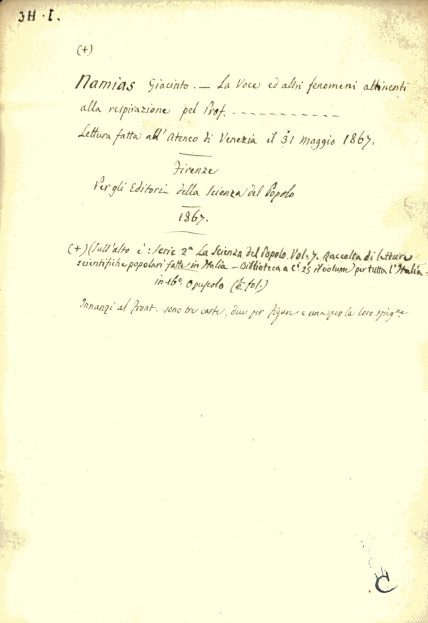 3H·I.
(+)
Namias Giacinto. — La Voce ed altri fenomeni attinenti
alla respirazione pel Prof. - - - - - - - - - - -
Lettura fatta all'Ateneo di Venezia il 31 maggio 1867.
Firenze
Per gli Editori della Scienza del Popolo
1867.
(+) (Sull'alto è: Serie 2ª La Scienza del Popolo. Vol. 7. Raccolta di letture
scientifiche popolari fatte in Italia — Biblioteca a Cⁱ 25 il volume) per tutta l'Italia -
in 16° Opuscolo
Innanzi al front. sono tre carte, due per figure e una per la loro spigⁿᵉ
C